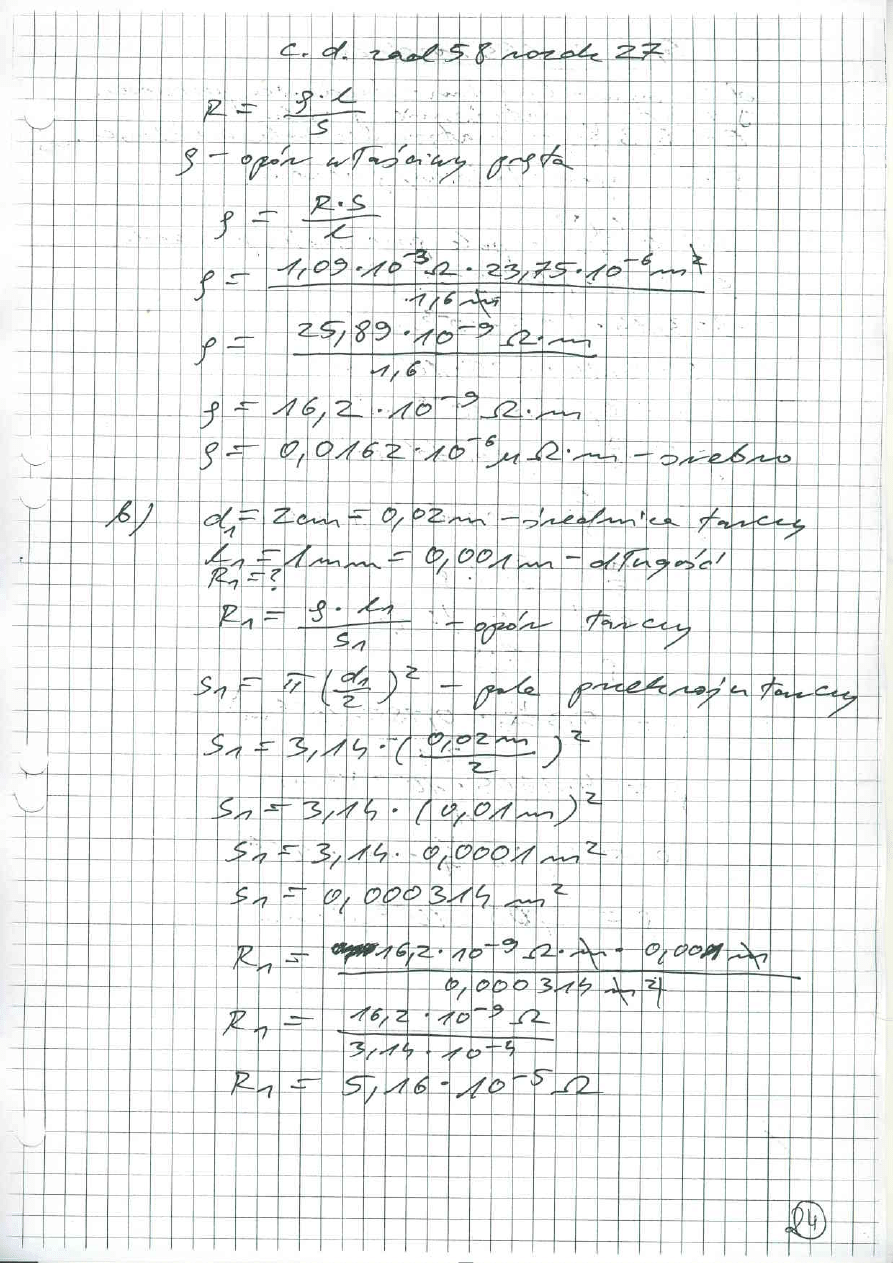 c. d. zad 58 rozdz 27
R = ρ·l / S
ρ – opór właściwy pręta
ρ = R·S / l
ρ = 1,09·10⁻³ Ω · 23,75·10⁻⁶ m² / 1,6 m
ρ = 25,89·10⁻⁹ Ω·m / 1,6
ρ = 16,2·10⁻⁹ Ω·m
ρ = 0,0162·10⁻⁶ μΩ·m – srebro
b) d₁ = 2cm = 0,02m – średnica tarczy
l₁ = 1mm = 0,001m – długość
R₁ = ?
R₁ = ρ·l₁ / S₁ – opór tarczy
S₁ = π (d₁/2)² – pole przekroju tarczy
S₁ = 3,14·(0,02m / 2)²
S₁ = 3,14·(0,01m)²
S₁ = 3,14·0,0001m²
S₁ = 0,000314 m²
R₁ = 16,2·10⁻⁹ Ω·m · 0,001 m / 0,000314 m²
R₁ = 16,2·10⁻⁹ Ω / 3,14·10⁻⁴
R₁ = 5,16·10⁻⁵ Ω
24